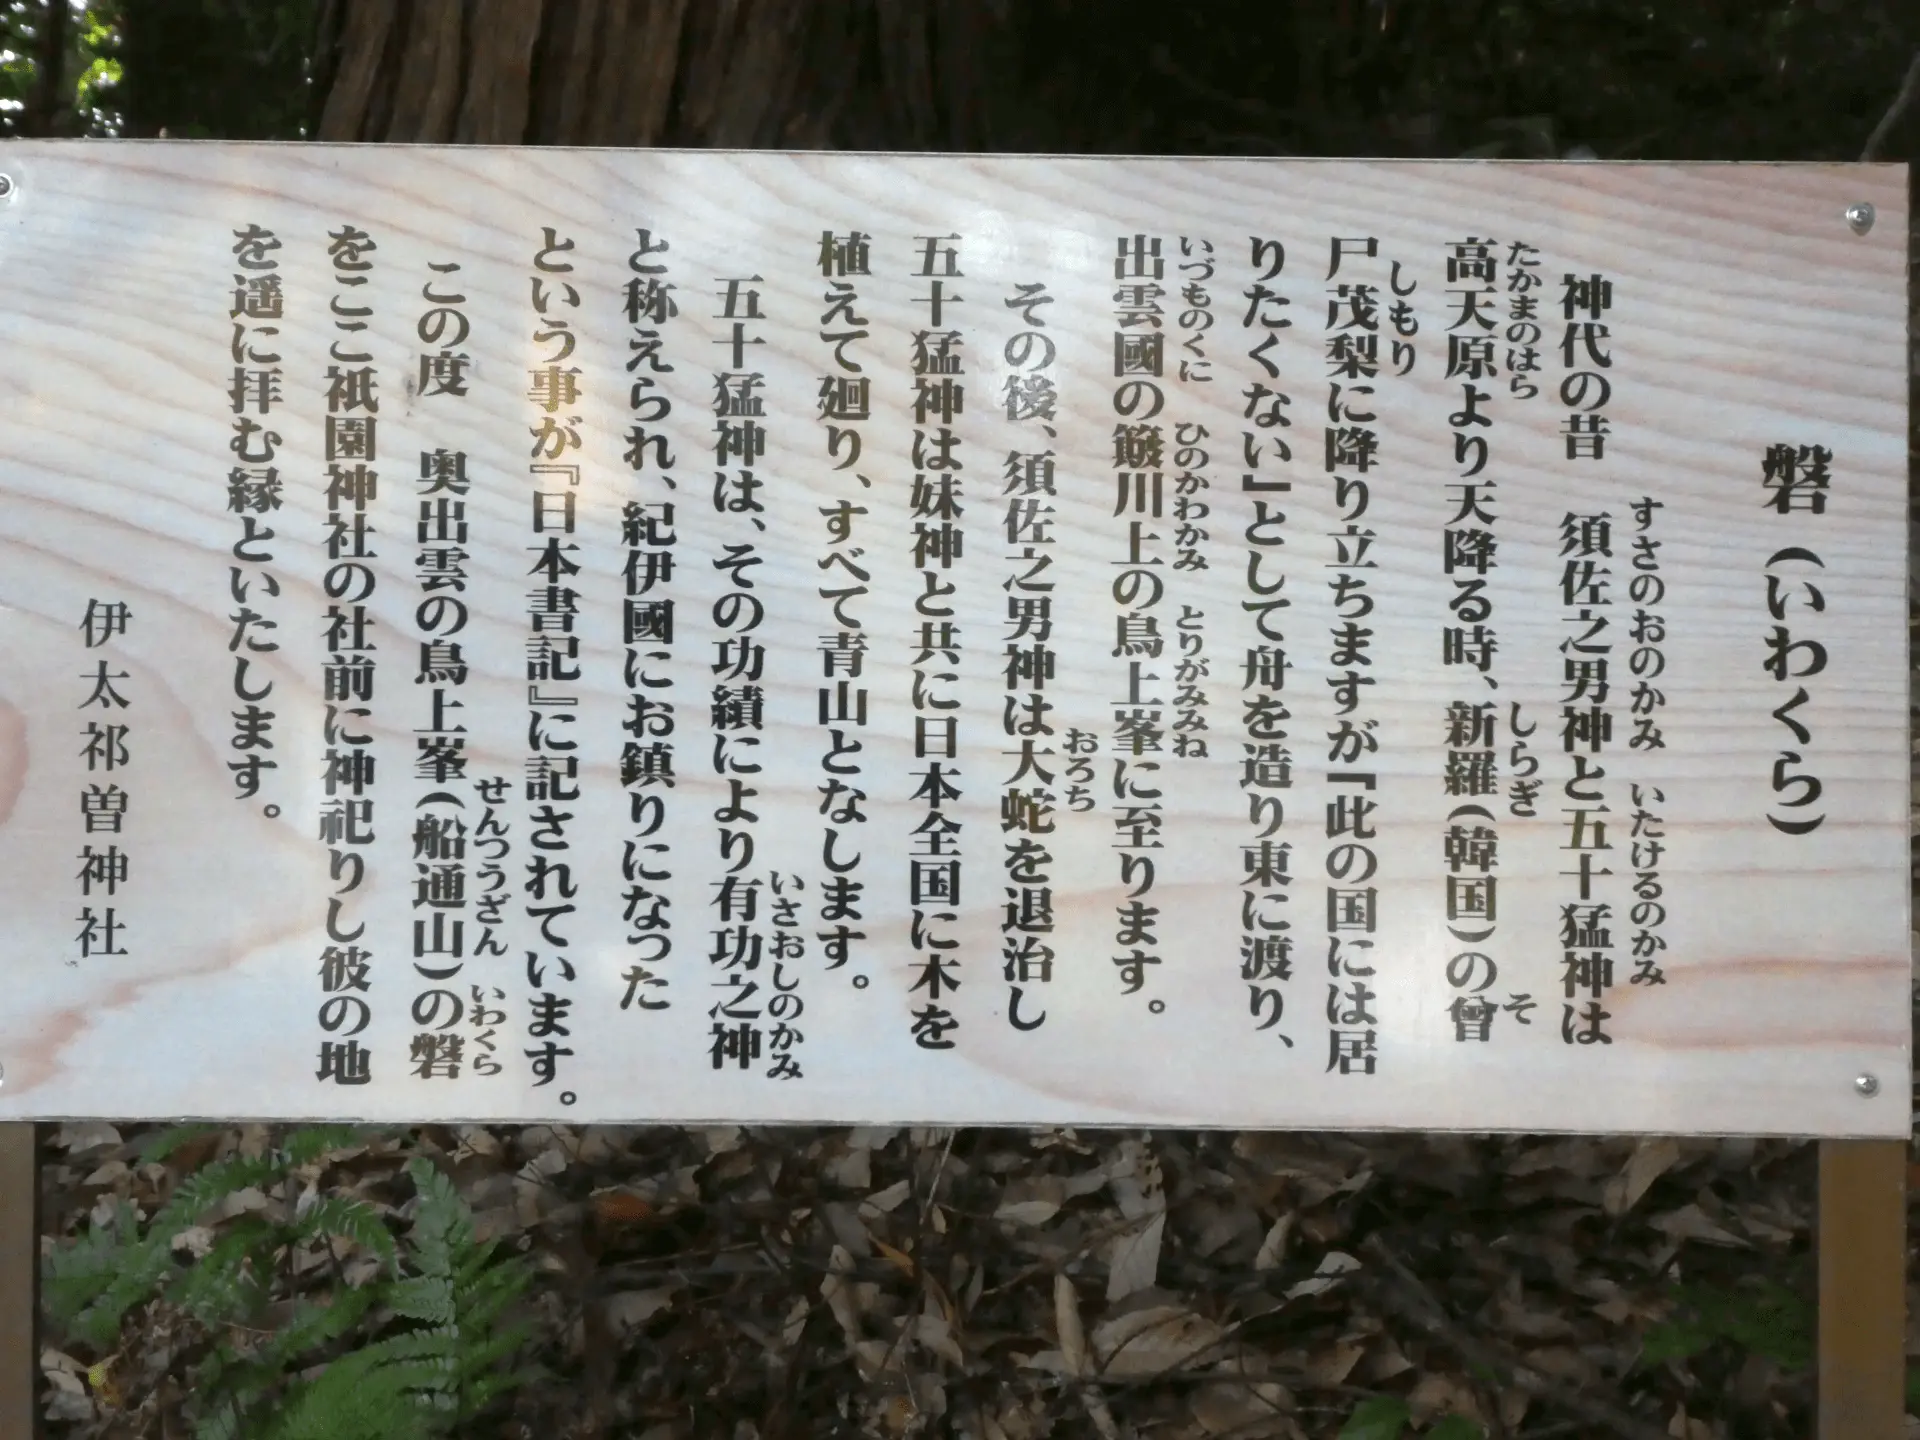 磐(いわくら)
神代の昔 須佐之男神と五十猛神は
高天原より天降る時、新羅(韓国)の曾
尸茂梨に降り立ちますが『此の国には居
りたくない』として舟を造り東に渡り、
出雲國の簸川上の鳥上峯に至ります。
その後、須佐之男神は大蛇を退治し
五十猛神は妹神と共に日本全国に木を
植えて廻り、すべて青山となします。
五十猛神は、その功績により有功之神
と称えられ、紀伊國にお鎮りになった
という事が『日本書記』に記されています。
この度 奥出雲の鳥上峯(船通山)の磐
をここ祇園神社の社前に神祀りし彼の地
を遥に拝む縁といたします。
伊太祁曽神社
すさのおのかみ いたけるのかみ
たかまのはら しらぎ そ
しもり
いづものくに ひのかわかみ とりがみみね
おろち
いさおしのかみ
せんつうざん いわくら